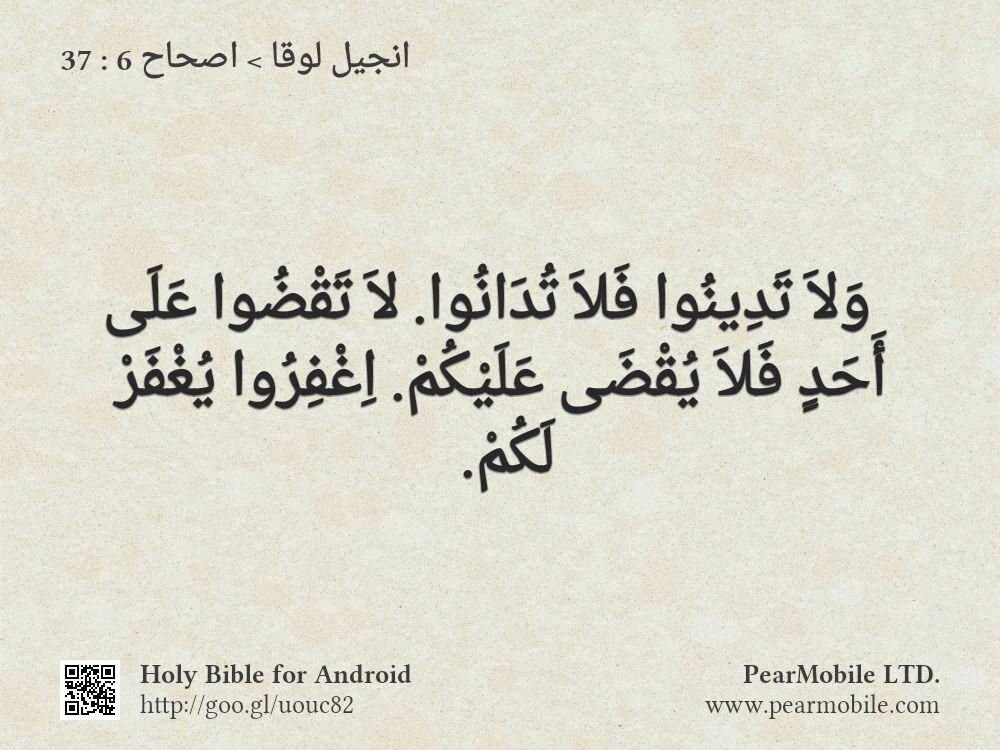 انجيل لوقا > اصحاح 6 : 37
وَلاَ تَدِينُوا فَلاَ تُدَانُوا. لاَ تَقْضُوا عَلَى
أَحَدٍ فَلاَ يُقْضَى عَلَيْكُمْ. اِغْفِرُوا يُغْفَرْ
لَكُمْ.
Holy Bible for Android
http://goo.gl/uouc82
PearMobile LTD.
www.pearmobile.com